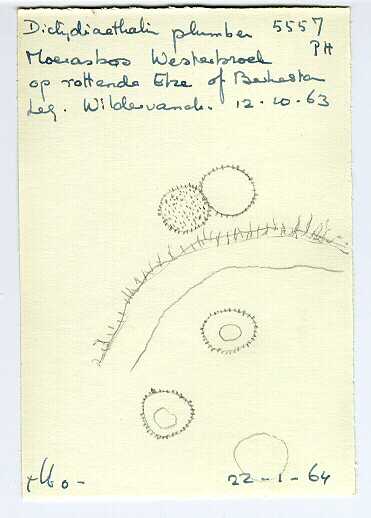 Dictydiaethalium plumbeu 5557
PH
Moerasbos Westerbroek
op rottende Else of Berketa
Leg. Wildervanck. 12-10-63
22-1-64